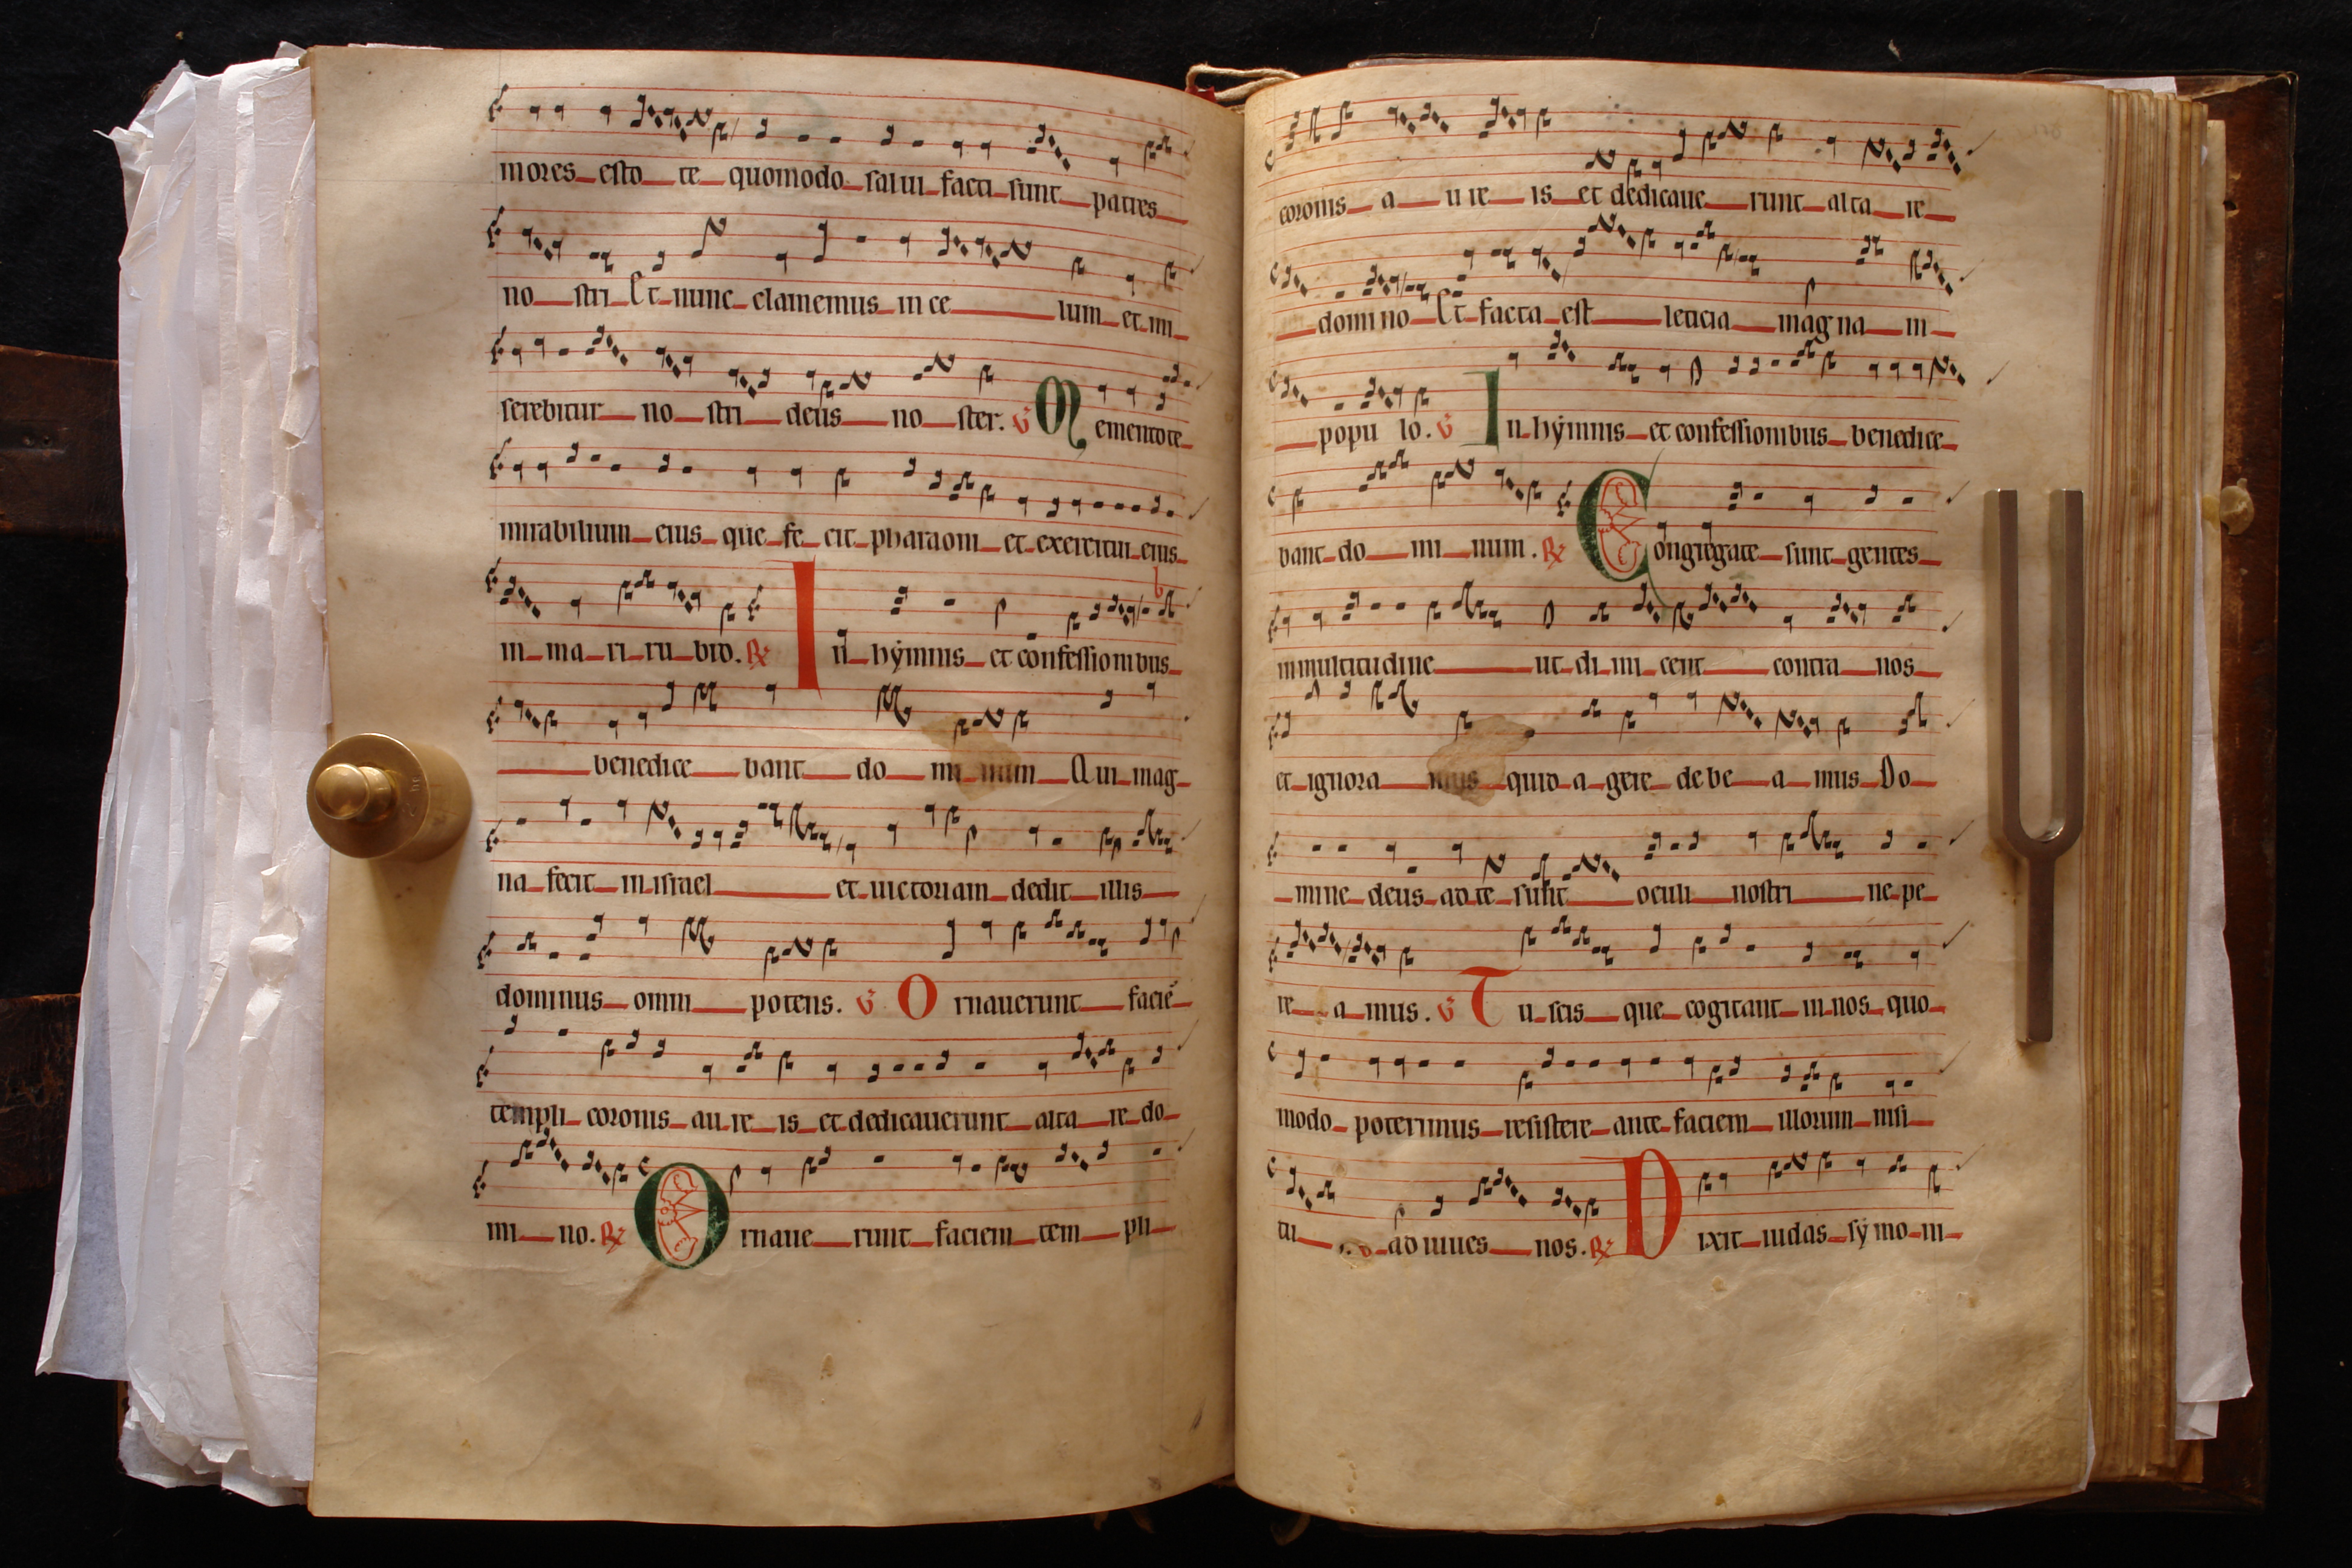 mores esto te quomodo salui facti sunt patres
no stri Et nunc clamemus in ce lum et mi
serebitur no stri deus no ster. V Mementote
mirabilium eius que fe cit pharaoni et exercitui eius
in ma ri ru bro. R In hẏmnis et confessionibus
benedice bant do mi num Qui mag
na fecit in israel et uictoriam dedit illis
dominus omni potens. V Ornauerunt faciē
templi coronis au re is et dedicauerunt alta re do
mi no. R Ornaue runt faciem tem pli
coronis a u re is et dedicaue runt alta re
domino Et facta est leticia magna in
popu lo. V In hẏmnis et confessionibus benedice
bant do mi num. R Congregate sunt gentes
in multitudine ut di mi cent contra nos
et ignora mus quid a gere debe a mus Do
mine deus ad te sunt oculi nostri ne pe
re a mus. V Tu scis que cogitant in nos quo
modo poterimus resistere ante faciem illorum nisi
tu adiuues nos. R Dixit iudas sẏmo ni